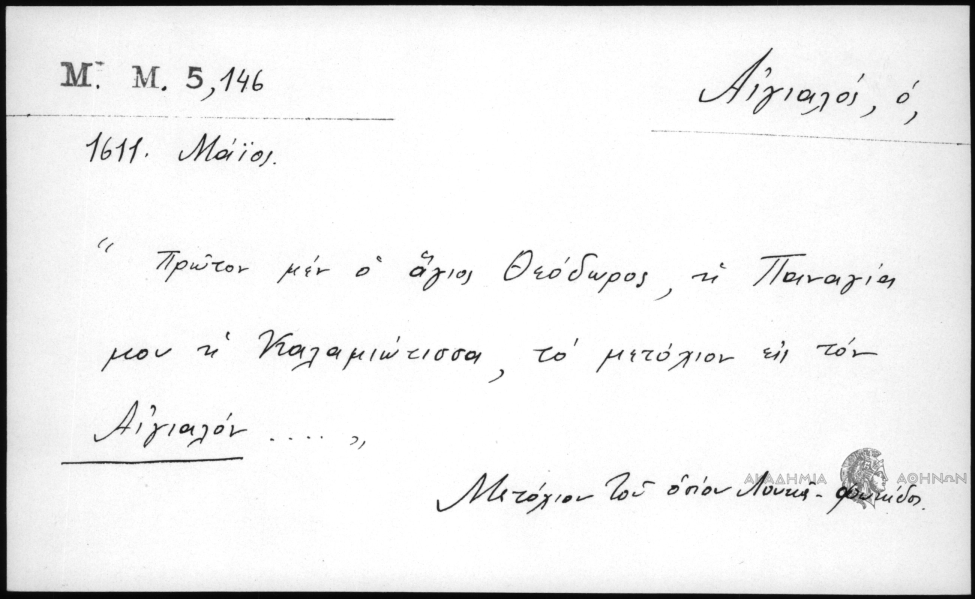 Μ. Μ. 5,146
Αἰγιαλός, ὁ,
1611. Μάϊος.
“ Πρῶτον μέν ὁ ἅγιος Θεόδωρος, ἡ Παναγία
μου ἡ Καλαμιώτισσα, τό μετόχιον εἰς τόν
Αἰγιαλόν .... „
ΑΚΑΔΗΜΙΑ ΑΘΗΝΩΝ
Μετόχιον τοῦ ὁσίου Λουκᾶ - Φωκίδος.